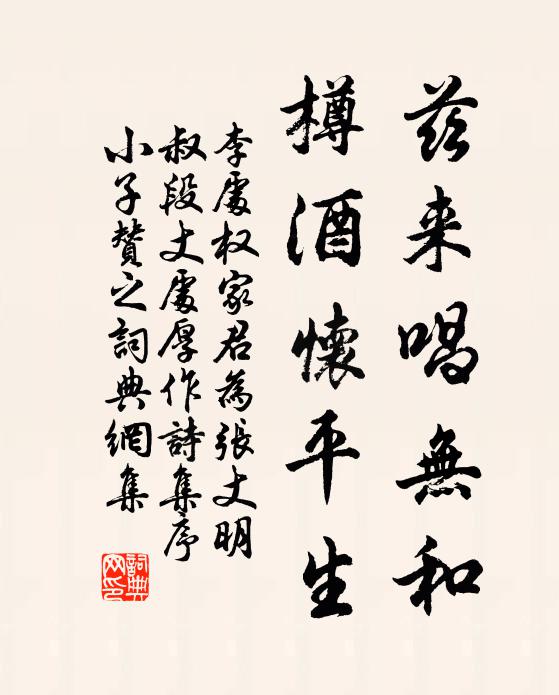 兹来唱無和
樽酒懷平生
李處权家君為張丈明
叔段丈處厚作詩集序
小子贊之詞典網集
詞典网印